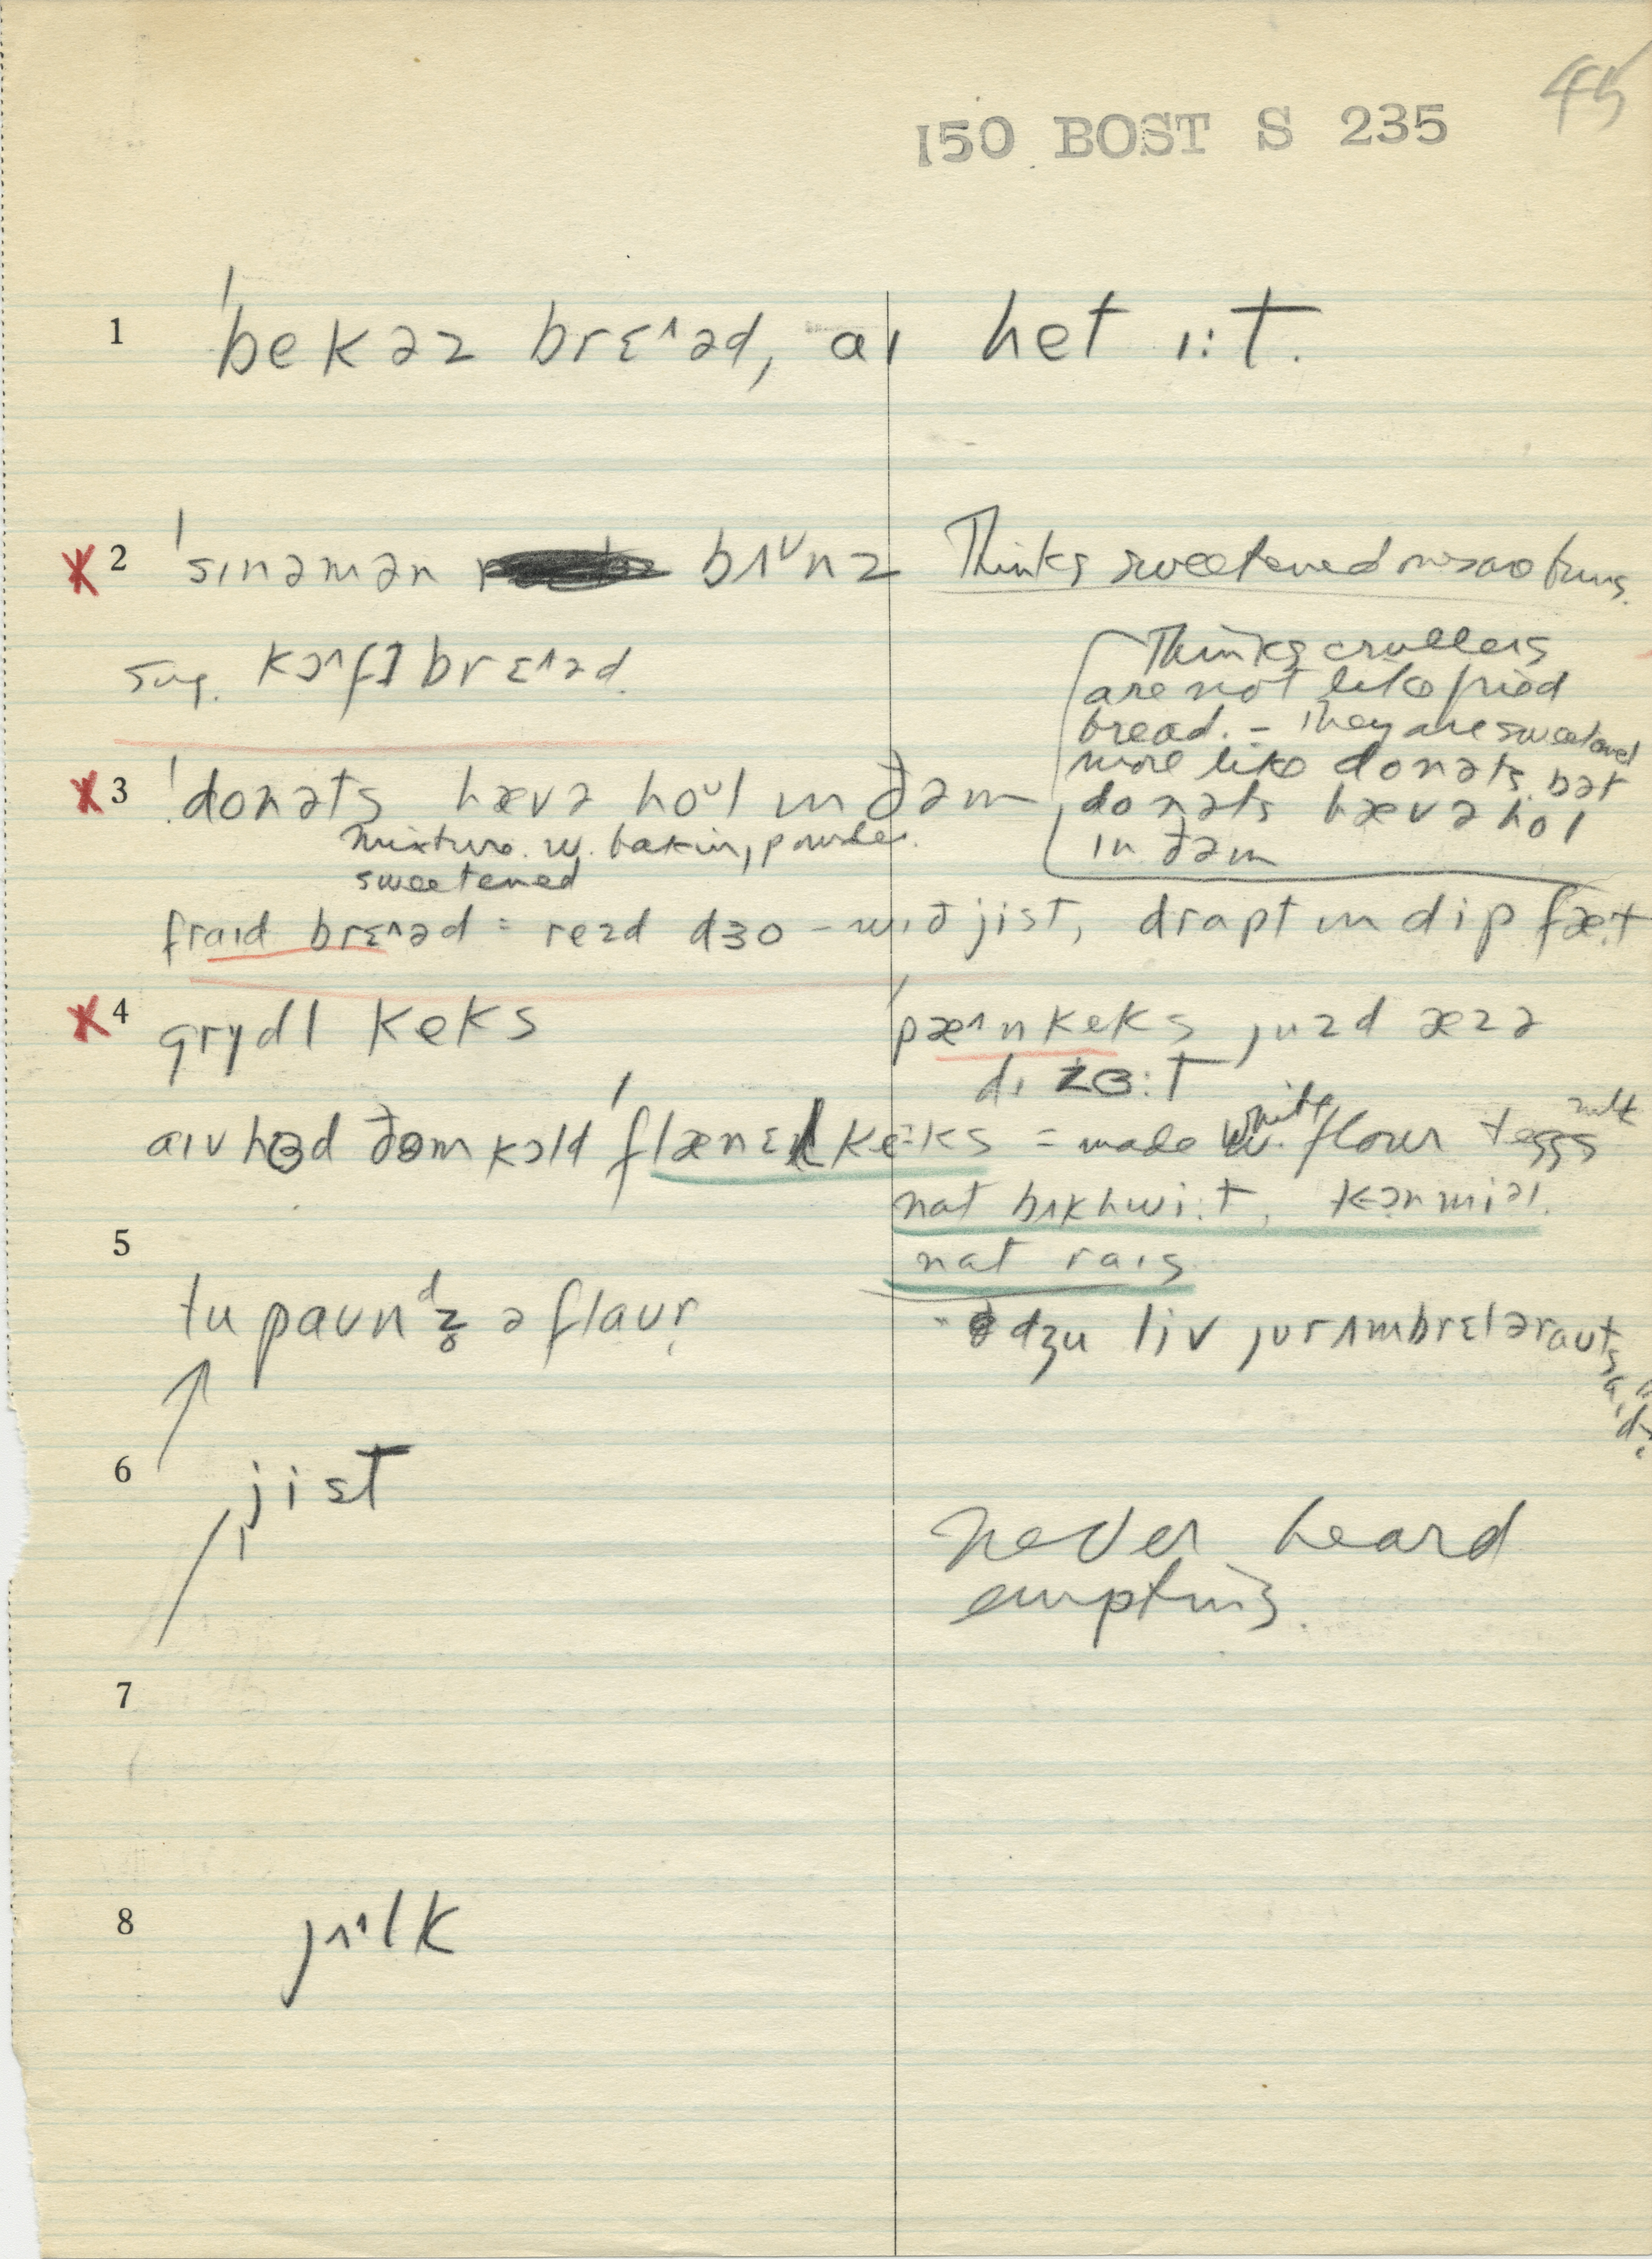 45
150 BOST S 235
1 ˈbekəz brɛ˄əd, aɪ het ɪ:t.
2 ˈsɪnəmən bʌ˅nz Thinks sweetened buns.
sug. kɔ˄fɪ brɛ˄əd.
Thinks crullers
are not like fried
bread. – They are sweetened
more like donəts. bət
donəts hævə hol
in ðəm
3 ˈdonəts hævə hoᵘl ɪn ðəm
mixture w. baking powder.
sweetened
fraɪd brɛ˄əd = rezd dʒo – wið jist, drapt ɪn dip fæt
4 grɪdl keks ˈpæ˄nkeks juzd æzə
dɪzɜ:t
aɪv hɜd ðəm kɔld ˈflænɛl ke:ks = made w. white flour + eggs milk
nat bʌkhwi:t, kɔrnmiəl.
nat raɪs
5
tu paʊnᵈz̥ ə flaʊr dʒu liv jʊr ʌmbrɛlər aʊtsaɪd
6 jist
never heard
emptins.
7
8 jʌ˄lk